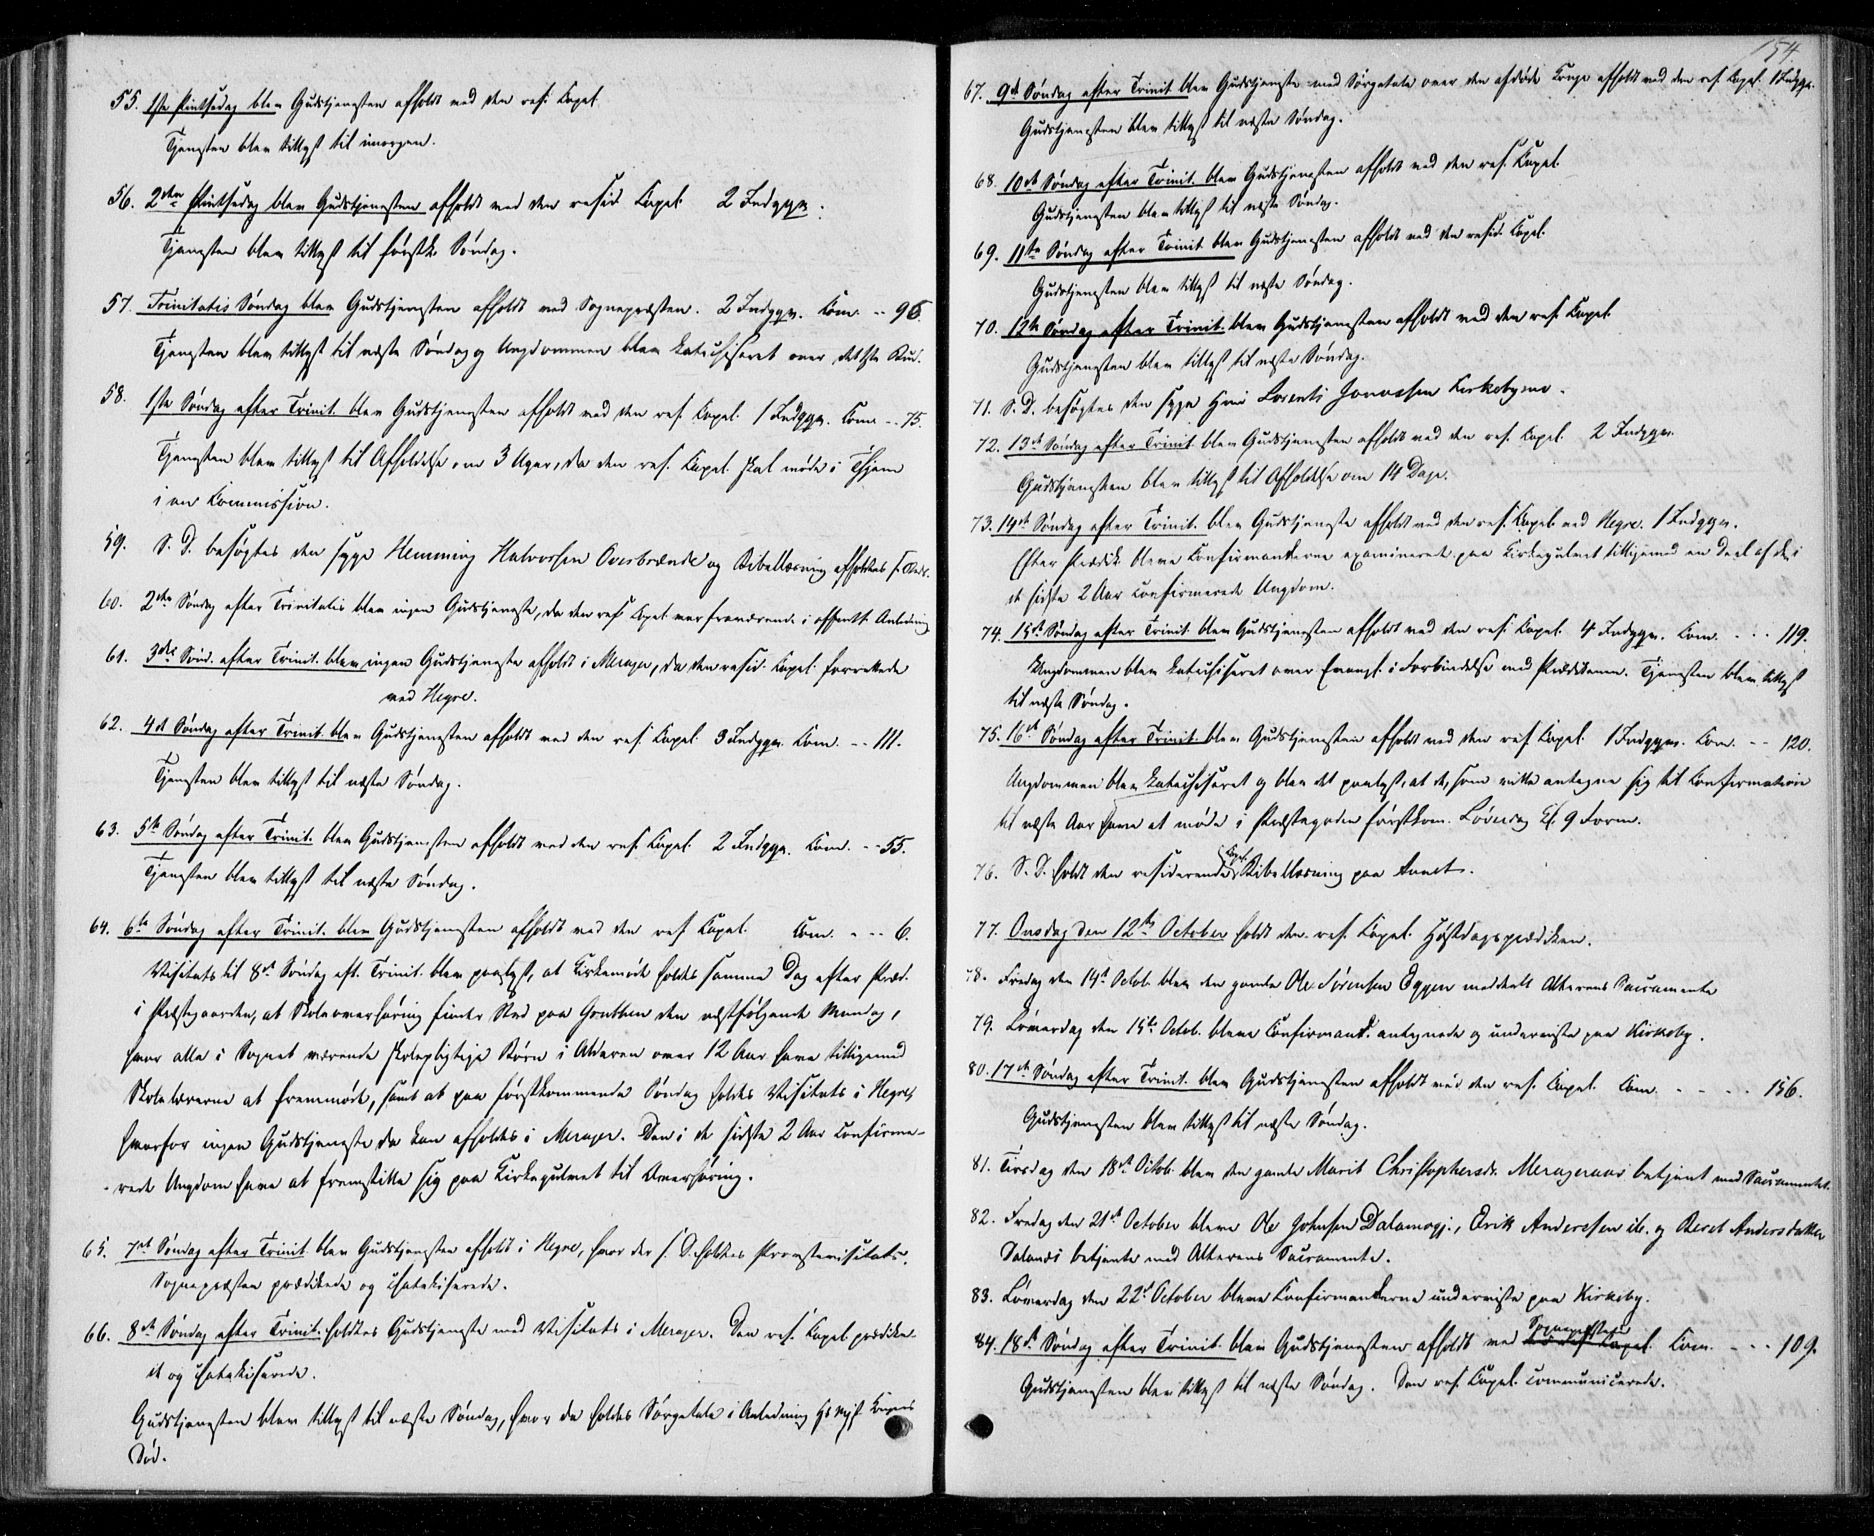 55. 1ste Pintsedag blev Gudstjenesten afholdt ved den res. Kapel.
Tjenesten blev tillyst til imorgen.
56. 2den Pintsedag blev Gudstjenesten afholdt ved den resid. Kapel. 2 Indggn.
Tjenesten blev tillyst til førstk. Søndag.
57. Trinitatis Søndag blev Gudstjenesten afholdt ved Sognepræsten. 2 Indggn. Com. -- 96.
Tjenesten blev tillyst til næste Søndag og Ungdommen blev katechiseret over det 1ste Bud.
58. 1ste Søndag efter Trinit. blev Gudstjenesten afholdt ved den res. Kapel. 1 Indggn. Com. -- 75.
Tjenesten blev tillyst til Afholdelse om 3 Uger, da den res. Kapel. skal møde i
i en Commission.
59. S. D. besøgtes den syge Hemming Halvorsen Overbrænde og Bibellæsning afholdtes s. Steds.
60. 2den Søndag efter Trinitatis blev ingen Gudstjeneste, da den res. Capel. var fraværende i offentl. Anledning
61. 3die Sønd. efter Trinit. blev ingen Gudstjeneste afholdt i Merager, da den resid. Kapel. forrettede
ved Hegre.
62. 4de Søndag efter Trinit. blev Gudstjenesten afholdt ved den res. Kapel. 3 Indggn. Com. -- 111.
Tjenesten blev tillyst til næste Søndag.
63. 5te Søndag efter Trinit. blev Gudstjenesten afholdt ved den res. Kapel. 2 Indggn. Com. -- 55.
Tjenesten blev tillyst til næste Søndag.
64. 6te Søndag efter Trinit. blev Gudstjenesten afholdt ved den res. Kapel. Com. - -- 6.
Visitats til 8de Søndag eft. Trinit. blev paalyst, at Kirkemøde holdes samme Dag efter Præd.
i Præstegaarden, at Skoleoverhøring finder Sted paa Grudthen den næstfølgende Mandag,
hvor alle i Sognet værende skolepligtige Børn i Alderen over 12 Aar have tilligemed
Skolelærerne at fremmøde, samt at paa førstkommende Søndag holdes Visitats i Hegre,
hvorfor ingen Gudstjeneste da kan afholdes i Merager. Den i de sidste 2 Aar Confirme-
rede Ungdom have at fremstille sig paa Kirkegulvet til Overhøring.
65. 7de Søndag efter Trinit. blev Gudstjenesten afholdt i Hegre, hvor der s. D. holdtes Provstevisitats.
Sognepræsten prædikede og chatekiserede.
66. 8de Søndag efter Trinit. holdtes Gudstjeneste med Visitats i Merager. Den res. Kapel. prædike-
de og chatekiserede.
Gudstjenesten blev tillyst til næste Søndag, hvor da holdes Sørgetale i Anledning Hs Mjst Kongens
Død.
154.
67. 9de Søndag efter Trinit. blev Gudstjeneste med Sørgetale over den afdøde Konge afholdt ved den res. Kapel. 1 Indggn.
Gudstjenesten blev tillyst til næste Søndag.
68. 10de Søndag efter Trinit. blev Gudstjenesten afholdt ved den res. Kapel.
Gudstjenesten blev tillyst til næste Søndag.
69. 11te Søndag efter Trinit. blev Gudstjenesten afholdt ved den resid. Kapel.
Gudstjenesten blev tillyst til næste Søndag.
70. 12te Søndag efter Trinit. blev Gudstjenesten afholdt ved den res. Kapel.
Gudstjenesten blev tillyst til næste Søndag.
71. S. D. besøgtes den syge Lorents Jonassen Kirkebymo.
72. 13de Søndag efter Trinit. blev Gudstjenesten afholdt ved den res. Capel. 2 Indggn.
Gudstjenesten blev tillyst til Afholdelse om 14 Dage.
73. 14de Søndag efter Trinit. blev Gudstjeneste afholdt ved den res. Capel. ved Hegre. 1 Indggn.
Efter Prædik. bleve Confirmanderne examineret paa Kirkegulvet tilligemed en Deel af de i
de sidste 2 Aar confirmerede Ungdom.
74. 15de Søndag efter Trinit. blev Gudstjenesten afholdt ved den res. Kapel. 4 Indggn. Com. - - - 119.
Ungdommen blev katechiseret over Evangl. i Forbindelse med Prædikenen. Tjenesten blev tillyst
til næste Søndag.
75. 16de Søndag efter Trinit. blev Gudstjenesten afholdt ved den res. Capel. 1 Indggn. Com. -- 120.
Ungdommen blev katechiseret og blev det paalyst, at de, som ville antegne sig til Confirmation
til næste Aar have at møde i Præstegaden førstkom. Løverdag Kl. 9 Form.
76. S. D. holdt den residerende Capel. Bibellæsning paa
77. Onsdag den 12te October holdt den res. Kapel. Høstdagsprædiken.
78. Fredag den 14de Octob. blev den gamle Ole Sørensen Eggen meddeelt Alterens Sacramente
79. Løverdag den 15de Octob. bleve Confirmand. antegnede og underviste paa Kirkeby.
80. 17de Søndag efter Trinit. blev Gudstjenesten afholdt ved den res. Capel. Com. - - - - 156.
Gudstjenesten blev tillyst til næste Søndag.
81. Tirsdag den 18de Octob. blev den gamle Marit Christophersdr. Merageraas betjent med Sacramentet.
82. Fredag den 21de October bleve Ole Johnsen Dalamogj., Erik Andersen ib. og Beret Andersdatter
Dalaas betjente med Alterens Sacramente.
83. Løverdag den 22de October bleve Confirmanderne underviste paa Kirkeby.
84. 18de Søndag efter Trinit. blev Gudstjenesten afholdt ved Sognepræsten den res. Capel. Com. - - - 109.
Gudstjenesten blev tillyst til næste Søndag. Den res. Kapel. communicerede.